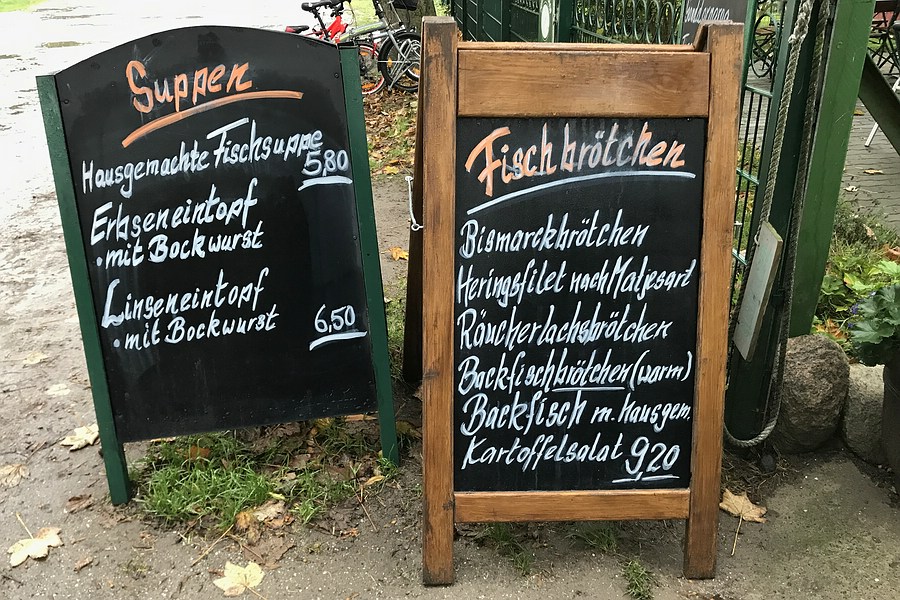 Suppen
Hausgemachte Fischsuppe
5,80
Erbseneintopf
• mit Bockwurst
Linseneintopf
• mit Bockwurst 6,50
Fischbrötchen
Bismarckbrötchen
Heringsfilet nach Matjesart
Räucherlachsbrötchen
Backfischbrötchen (warm)
Backfisch m. Hausgem.
Kartoffelsalat 9,20